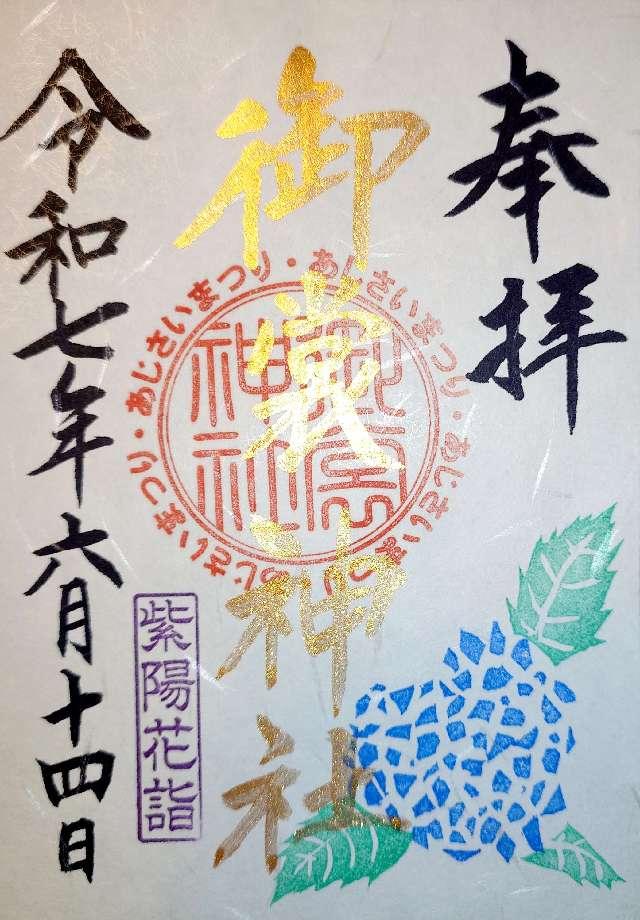 奉拝
御裳神社
御裳神社
あじさいまつり・あじさいまつり・あじさいまつり・あじさいまつり・
紫陽花詣
令和七年六月十四日